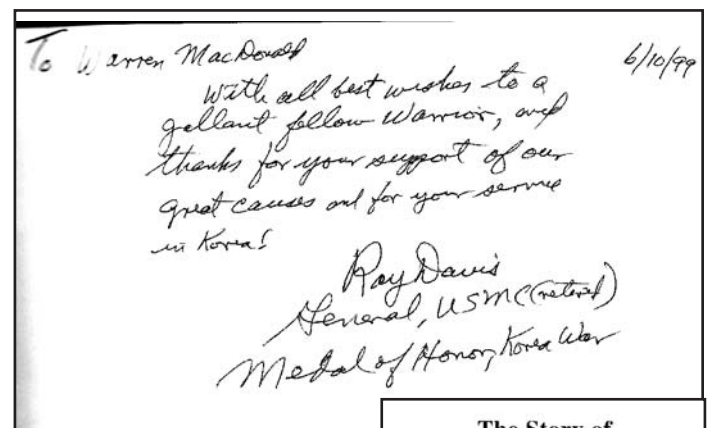 To Warren MacDonald
6/10/99
With all best wishes to a
gallant fellow Warrior, and
thanks for your support of our
great causes and for your service
in Korea!
Ray Davis
General, USMC (retired)
Medal of Honor, Korea War
The Story of